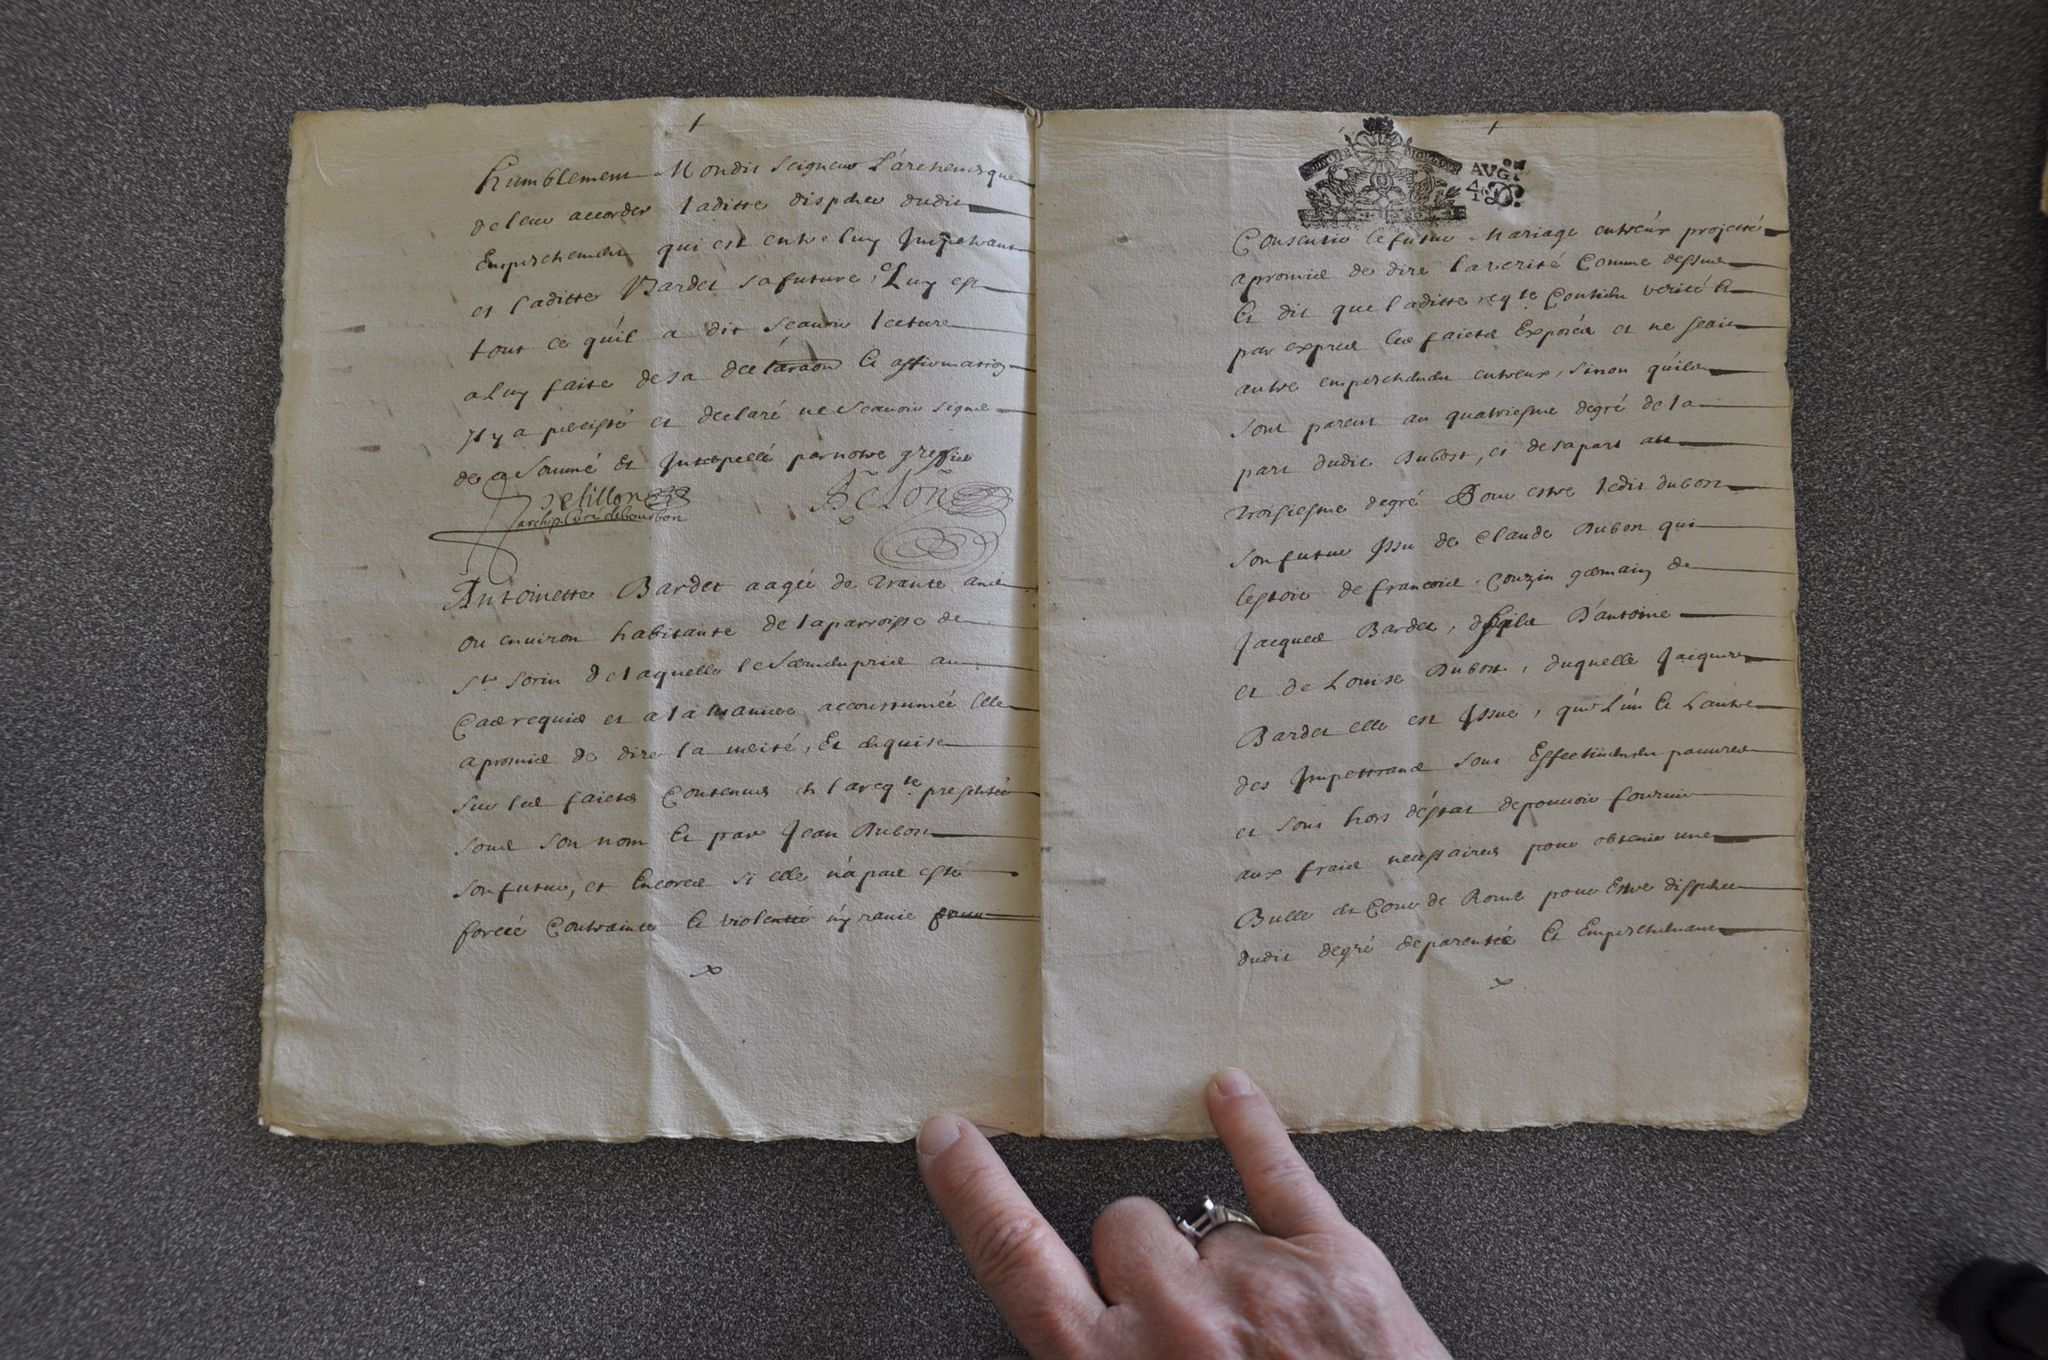 humblement Mondit Seigneur L'archevesque
de leur accorder laditte dispence dudit
Empeschement qui est entre luy Impetrant
et laditte Bardet sa future, Luy est
tout ce qu'il a dit scavoir lecture
a luy faite de sa declaraon Et affirmation
Il y a percisté et declaré ne scavoir signer
de ce sommé Et Interpellé par notre greffier
Petillon
archip. Curé de bourbon
Antoinette Bardet aagée de trante ans
ou environ habitante de la parroisse de
St Sorin de laquelle le serment pris au
Cas requis et a la maniere accoustumée Elle
a promis de dire la verité, Et enquise
sur les faicts Contenus en la reqte presentée
sous son nom Et par Jean Dubost
son futur, et Encores si elle n'a pas esté
forcée Contrainte Et violentée ny ravie pour
AVG:
4 D:
Consentir le futur Mariage entreux projetté
a promis de dire la verité Comme dessus
Et dit que laditte reqte Contient verité Et
par expres les faicts Exposés et ne scait
autre empeschement entreux, sinon qu'ils
sont parens au quatriesme degré de la
part dudit Dubost, et de sa part au
troisiesme degré Pour estre ledit dubost
son futur Issu de Claude Dubost qui
lestoit de francois, Couzin germain de
Jacques Bardet, d'Antoine
et de Louise Dubost, duquelle Jacques
Bardet elle est Issue, que L'un Et L'autre
des Impetrans sont Effectivement pauvres
et sont hors d'estat de pouvoir fournir
aux frais necessaires pour obtenir une
Bulle en Cour de Rome pour Estre dispences
dudit degré de parentée Et Empeschement